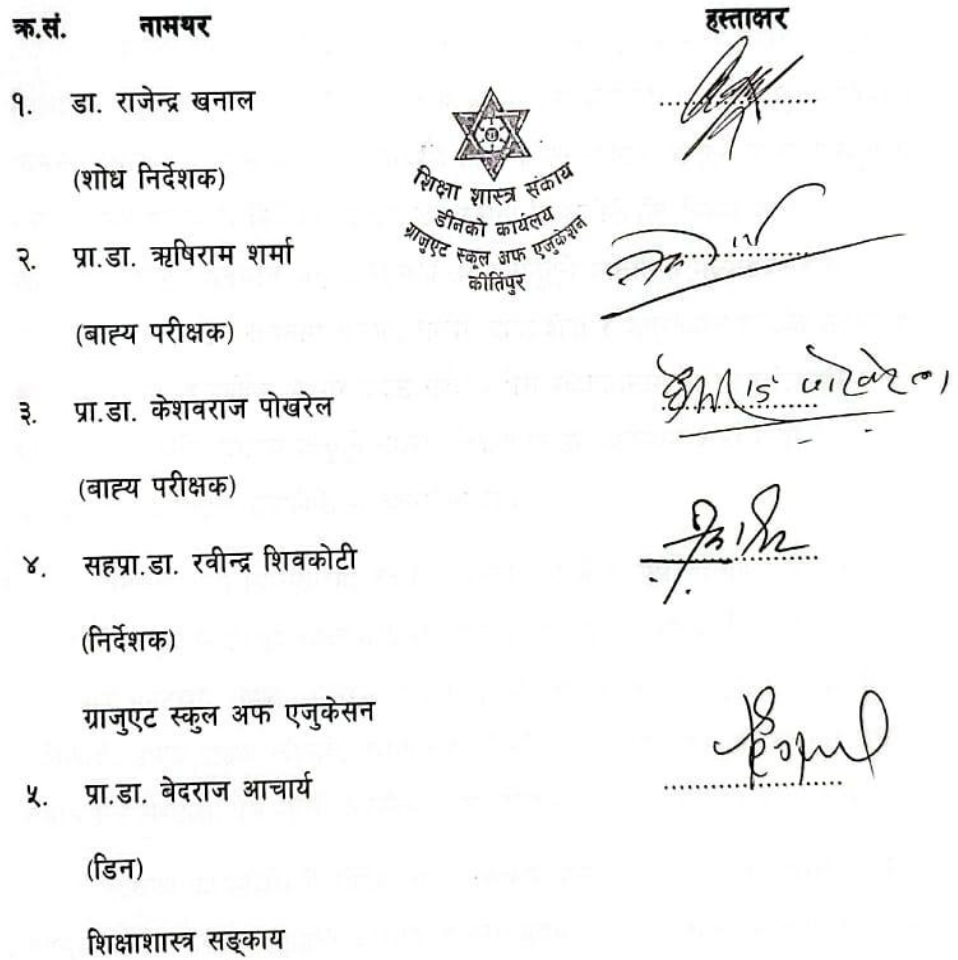 क्र.सं. नामथर हस्ताक्षर
१. डा. राजेन्द्र खनाल
(शोध निर्देशक)
शिक्षा शास्त्र संकाय
डीनको कार्यलय
ग्राजुएट स्कूल अफ एजुकेशन
कीर्तिपुर
२. प्रा.डा. ऋषिराम शर्मा
(बाह्य परीक्षक)
३. प्रा.डा. केशवराज पोखरेल
(बाह्य परीक्षक)
४. सहप्रा.डा. रवीन्द्र शिवकोटी
(निर्देशक)
ग्राजुएट स्कुल अफ एजुकेसन
५. प्रा.डा. वेदराज आचार्य
(डिन)
शिक्षाशास्त्र सङ्काय